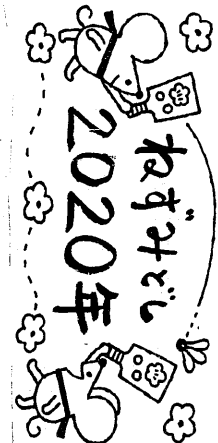 ねずみどし
2020年